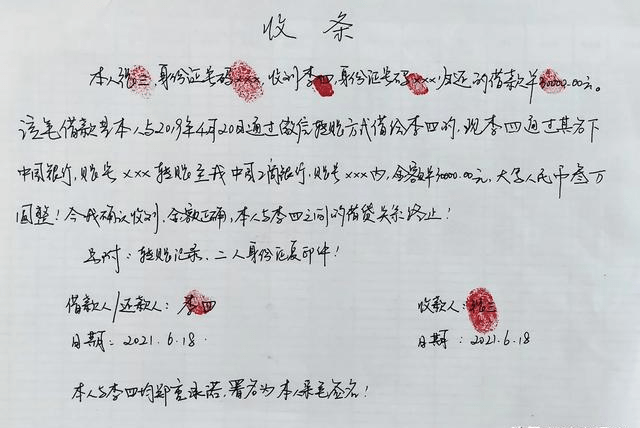 收条
本人张三,身份证号码xxx,收到李四,身份证号码xxx归还的借款¥30000.00元。
该笔借款是本人与2019年4月20日通过微信转账方式借给李四的,现李四通过其名下
中国银行,账号xxx转账至我中国工商银行,账号xxx内,金额¥30000.00元,大写人民币叁万
圆整!今我确认收到,金额正确,本人与李四之间的借贷关系终止!
另附:转账记录、二人身份证复印件!
借款人/还款人:李四 收款人:张三
日期:2021.6.18. 日期:2021.6.18
本人与李四均郑重承诺,署名为本人亲笔签名!